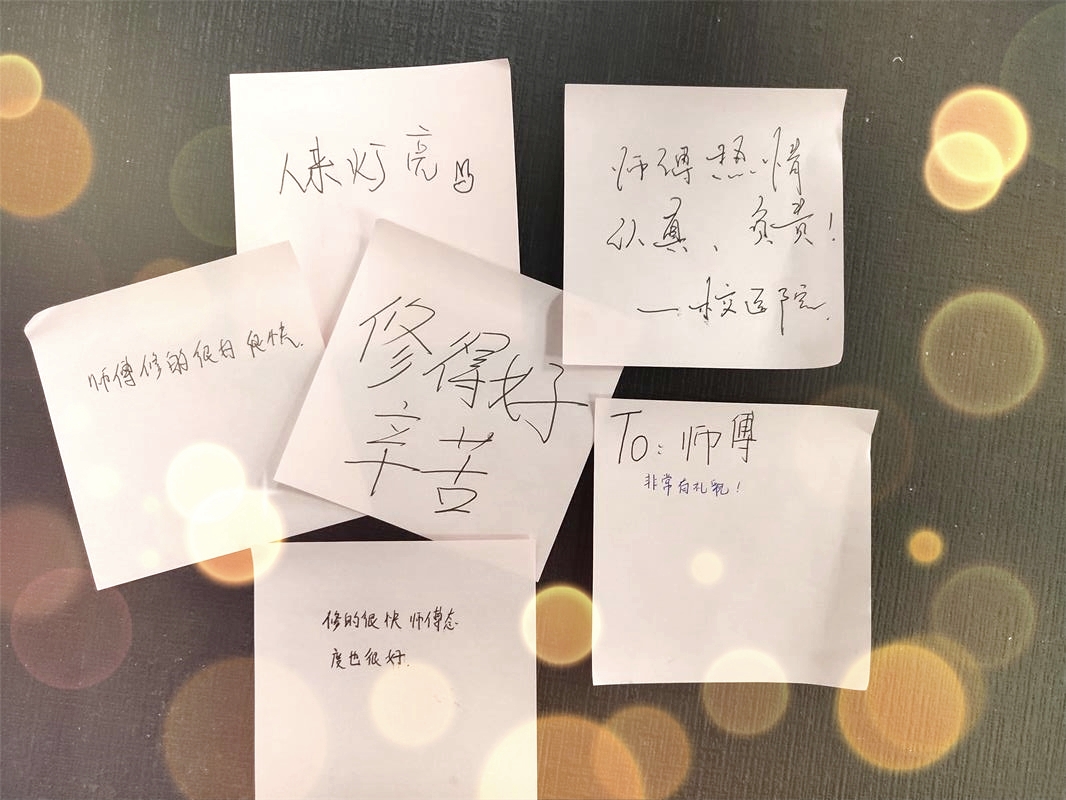 人来灯亮
师傅热情
认真、负责!
—校医院.
师傅修的很 很快.
修得好
辛苦
To:师傅
非常有礼貌!
修的很快 师傅态
度也很好.